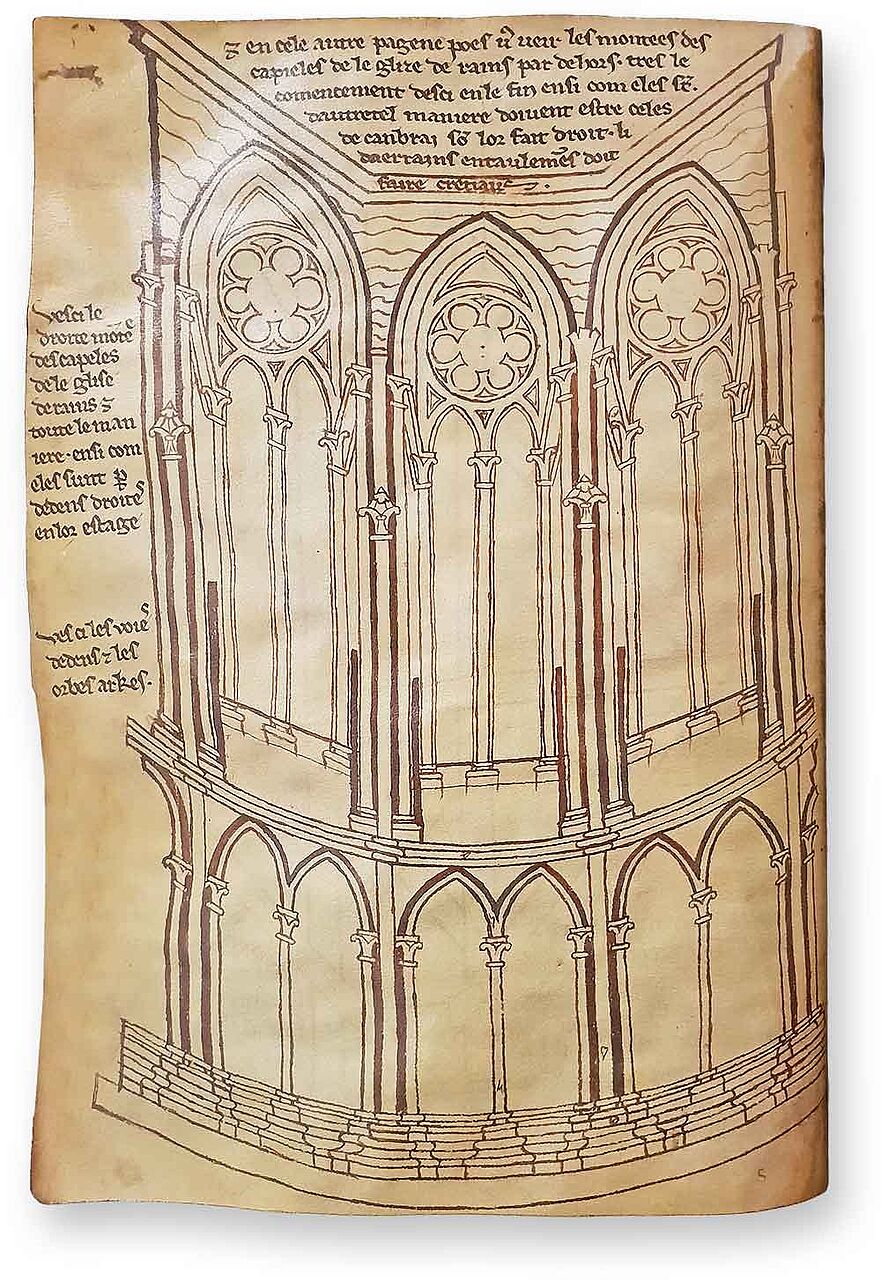 ⁊ en cele autre pagene poes vͦ veir les montees des
capieles de le glize de rains par dehors. tres le
comencement desci en le fin ensi com eles sūt.
dautretel maniere doivent estre celes
de canbrai sō lor fait droit. li
daerrains entaulemēs doit
faire cretiaus.
Vesci le
droite moteͤ
des capeles
de le glise
de rains ⁊
toute le man
iere. ensi com
eles sunt ꝑ
dedens droiteˢ
en lor estage
Ves ci les voieˢ
dedens ⁊ les
orbes arkes.
5